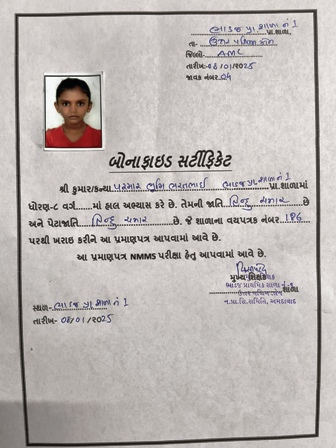 ભાડજ પ્રા. શાળા નં 1 પ્રા.શાળા,
તા- ઉત્તર પશ્ચિમ ઝોન
જિલ્લો- AMC
તારીખ:-08/01/2025
જાવક નંબર 24
બોનાફાઇડ સર્ટીફિકેટ
શ્રી કુમાર/કન્યા પરમાર ભુમિ ભરતભાઈ ભાડજ પ્રા.શાળા નં 1 પ્રા.શાળામાં
ધોરણ-૮ વર્ગ માં હાલ અભ્યાસ કરે છે. તેમની જાતિ હિન્દુ ચમાર છે
અને પેટાજાતિ હિન્દુ ચમાર છે. જે શાળાના વયપત્રક નંબર 186
પરથી ખરાઇ કરીને આ પ્રમાણપત્ર આપવામાં આવે છે.
આ પ્રમાણપત્ર NMMS પરીક્ષા હેતુ આપવામાં આવે છે.
મુખ્ય શિક્ષક
ભાડજ પ્રાથમિક શાળા
શાળા
ઉત્તર પશ્ચિમ ઝોન
ન.પ્રા.શિ.સમિતિ, અમદાવાદ
સ્થળ- ભાડજ પ્રા. શાળા નં 1
તારીખ- 08/01/2025